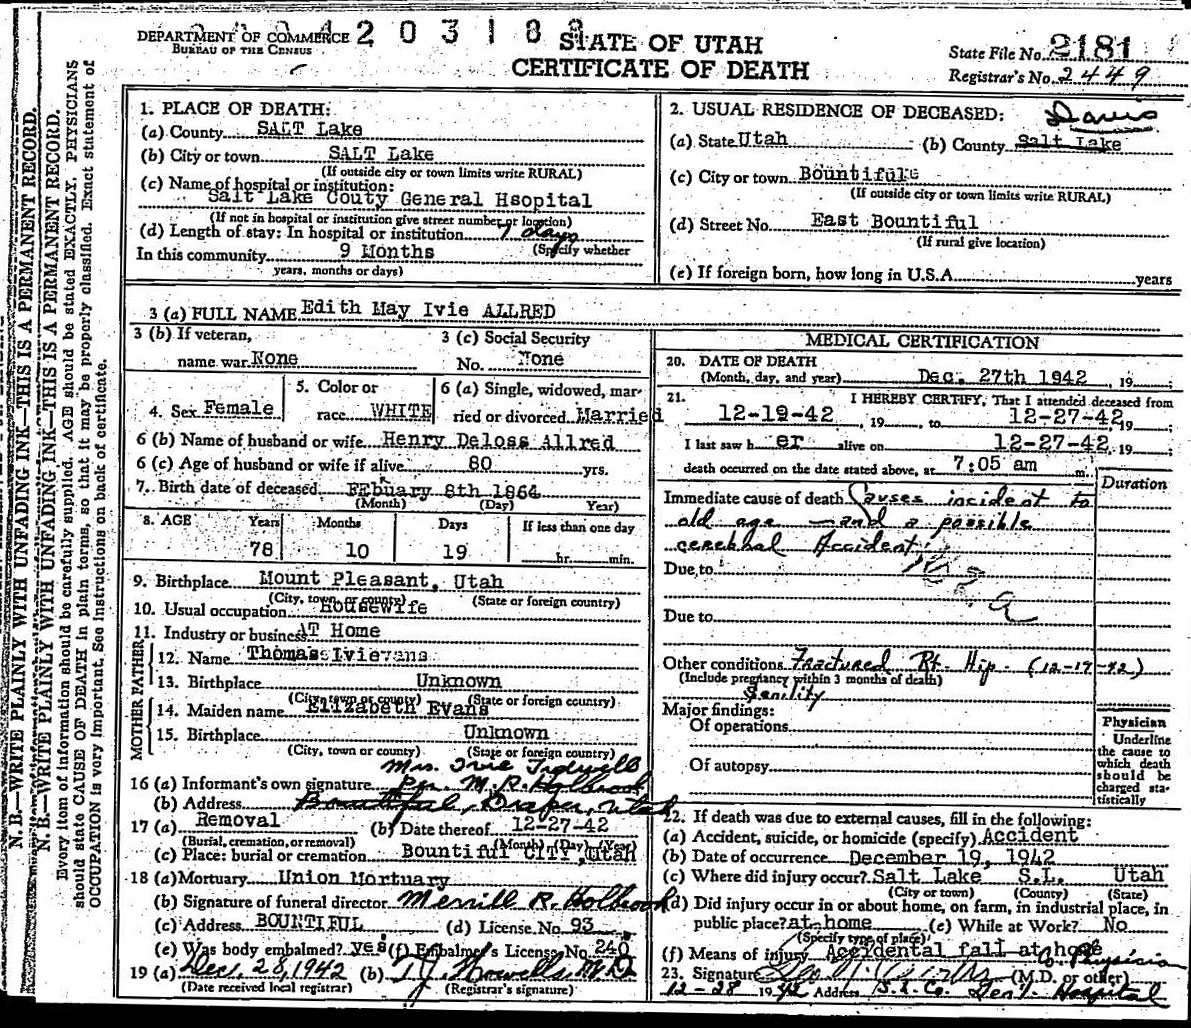 DEPARTMENT OF COMMERCE
BUREAU OF THE CENSUS
STATE OF UTAH
CERTIFICATE OF DEATH
State File No. 2181
Registrar's No. 2449
N. B.—WRITE PLAINLY WITH UNFADING INK—THIS IS A PERMANENT RECORD.
N. B.—WRITE PLAINLY WITH UNFADING INK—THIS IS A PERMANENT RECORD.
Every item of information should be carefully supplied. AGE should be stated EXACTLY. PHYSICIANS
should state CAUSE OF DEATH in plain terms, so that it may be properly classified. Exact statement of
OCCUPATION is very important. See instructions on back of certificate.
1. PLACE OF DEATH:
(a) County SALT Lake
(b) City or town SALT Lake
(If outside city or town limits write RURAL)
(c) Name of hospital or institution:
Salt Lake Couty General Hsopital
(If not in hospital or institution give street number or location)
(d) Length of stay: In hospital or institution 7 days
(Specify whether
In this community 9 Months
years, months or days)
2. USUAL RESIDENCE OF DECEASED:
Davis
(a) State Utah (b) County Salt Lake
(c) City or town Bountiful
(If outside city or town limits write RURAL)
(d) Street No. East Bountiful
(If rural give location)
(e) If foreign born, how long in U.S.A. years
3 (a) FULL NAME Edith May Ivie ALLRED
3 (b) If veteran,
name war None
3 (c) Social Security
No. None
4. Sex Female
5. Color or
race WHITE
6 (a) Single, widowed, mar-
ried or divorced Married
6 (b) Name of husband or wife Henry Deloss Allred
6 (c) Age of husband or wife if alive 80 yrs.
7. Birth date of deceased FEbuary 8th 1864
(Month) (Day) Year)
8. AGE Years Months Days If less than one day
78 10 19 hr. min.
9. Birthplace Mount Pleasant, Utah
(City, town or county) (State or foreign country)
10. Usual occupation Housewife
11. Industry or business AT Home
MOTHER FATHER
12. Name Thomas Ivie
13. Birthplace Unknown
(City, town or county) (State or foreign country)
14. Maiden name Elizabeth Evans
15. Birthplace Unknown
(City, town or county) (State or foreign country)
Mrs. Ivie Tidwell
16 (a) Informant's own signature Per. M. R. Holbrook
(b) Address Bountiful, Draper, Utah
17 (a) Removal (b) Date thereof 12-27-42
(Burial, cremation, or removal) (Month) (Day) (Year)
(c) Place: burial or cremation Bountiful CITY, Utah
18 (a) Mortuary Union Mortuary
(b) Signature of funeral director Merrill R. Holbrook
(c) Address BOUNTIFUL (d) License No. 93
(e) Was body embalmed? yes (f) Embalmer's License No. 240
19 (a) Dec. 28, 1942 (b) T. J. Howells, M.D.
(Date received local registrar) (Registrar's signature)
MEDICAL CERTIFICATION
20. DATE OF DEATH
(Month, day, and year) Dec. 27th 1942, 19
21. I HEREBY CERTIFY, That I attended deceased from
12-19-42, 19 to 12-27-42, 19
I last saw h er alive on 12-27-42, 19
death occurred on the date stated above, at 7:05 am m.
Duration
Immediate cause of death Causes incident to
old age — and a possible
cerebral Accident.
Due to
Due to
Other conditions Fractured Rt. Hip. (12-17-42)
(Include pregnancy within 3 months of death)
Senility
Major findings:
Of operations
Of autopsy
Physician
Underline
the cause to
which death
should be
charged sta-
tistically
22. If death was due to external causes, fill in the following:
(a) Accident, suicide, or homicide (specify) Accident
(b) Date of occurrence December 19, 1942
(c) Where did injury occur? Salt Lake S.L. Utah
(City or town) (County) (State)
(d) Did injury occur in or about home, on farm, in industrial place, in
public place? at home (e) While at Work? No
(Specify type of place)
(f) Means of injury Accidental fall at home
Co. Physician
23. Signature (M.D. or other)
12-28 1942 Address S. L. Co. Gen'l Hospital